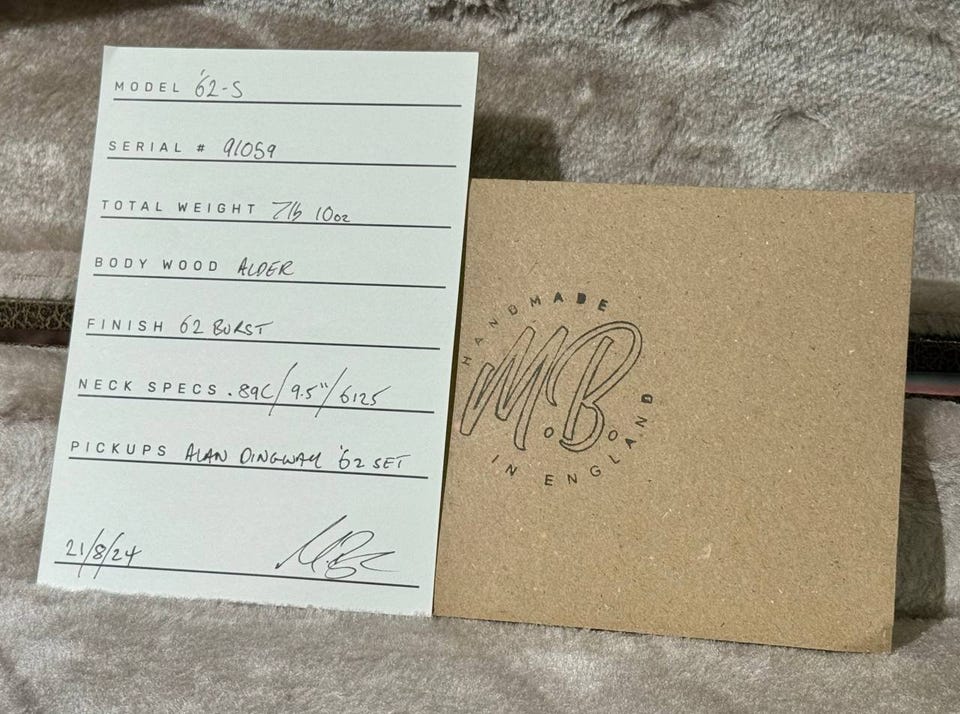 MODEL '62-S
SERIAL # 91059
TOTAL WEIGHT 7lb 10oz
BODY WOOD ALDER
FINISH 62 BURST
NECK SPECS .89C/9.5"/6125
PICKUPS ALAN DINGWALL '62 SET
21/8/24
HANDMADE
MB
IN ENGLAND